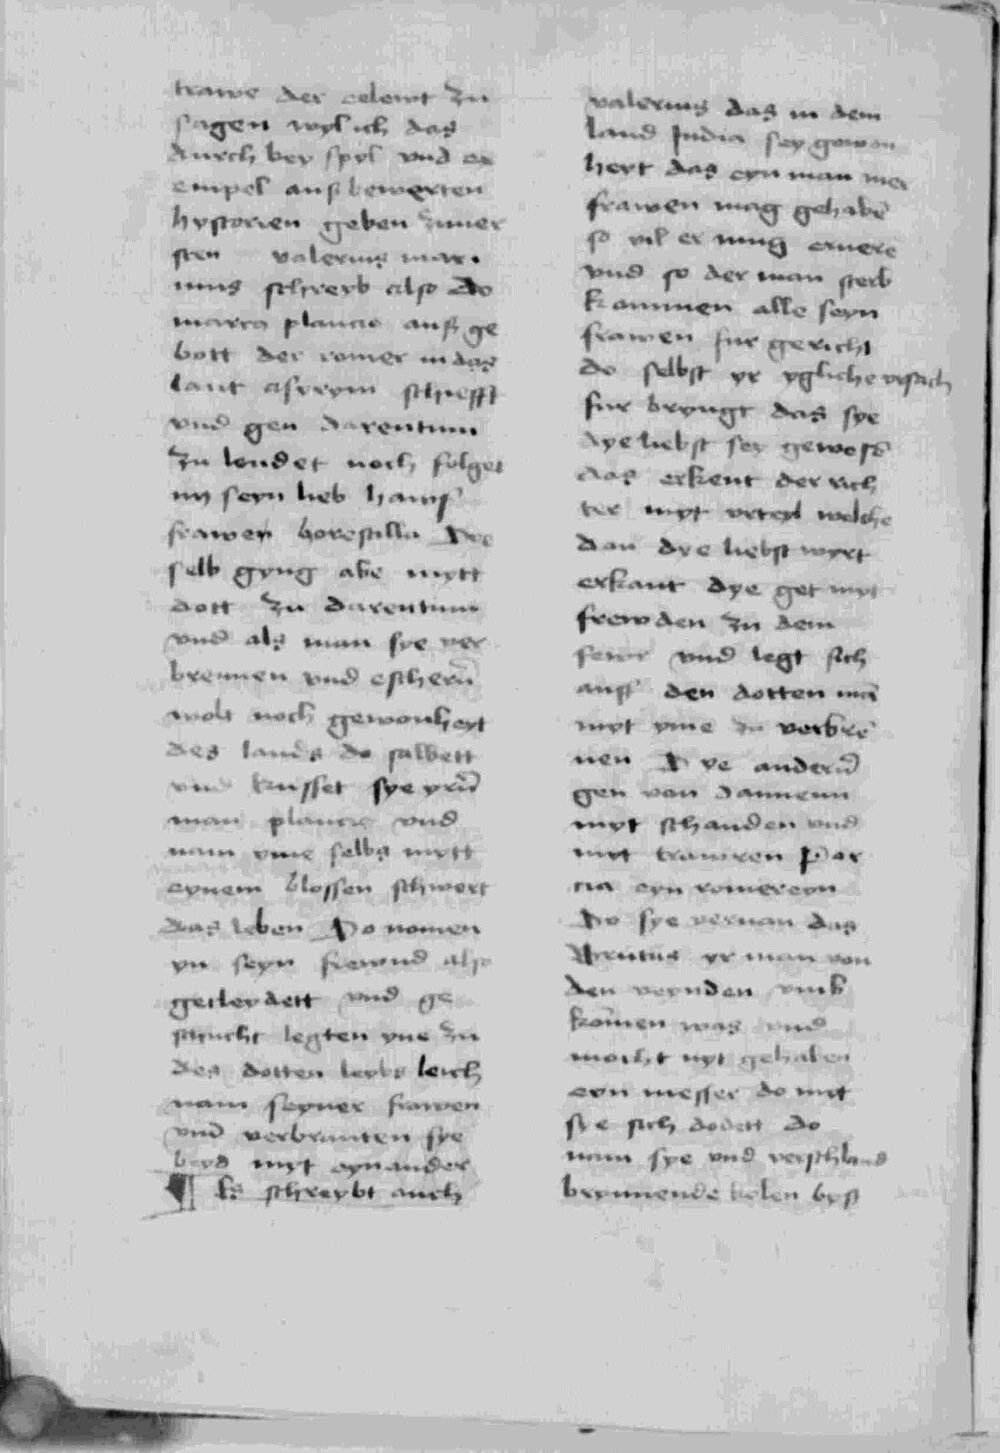 trawe der eelewt zu
sagen wyl ich das
durch bey spyl vnd ex
empel auß bewerten
hystorien geben zumer
sten valerius maxi
mus schreyb also Do
marco plancio auß ge
bott der romer in das
lant asyrym schiefft
vnd gen darentum
zu lendet noch folget
im seyn lieb hawß
frawen horestilla Dye
selb gyng abe mytt
dott zu darentum
vnd als man sye ver
brennen vnd eschern̄
wolt noch gewonheyt
des lands do salbett
vnd kusset sye yrn̄
man plancio vnd
nam yme selbs mytt
eynem blossen schwert
das leben Do nomen
yn seyn frewnd also
gecleydett vnd ge
schucht legten yne zu
des dotten leybs leich
nam seyner frawen
vnd verbranten sye
beyd myt eynander
¶ Es schreybt auch
valerius das in dem
land India sey gewon
heyt das eyn man mer
frawen mag gehabē
so vil er mug ernere
vnd so der man sterb
kommen alle seyn
frawen fur gericht
do selbst yr ygliche vrsach
fur bryngt das sye
dye liebst sey geweſd
das erkent der rich
ter myt vrteyl welche
dan dye liebst wyrt
erkant dye get myt
frewden zu dem
fewr vnd legt sich
auff den dotten mā
myt yme zu verbrē
nen Dye andern̄
gen von dannenn
myt schanden vnd
myt trawren Por
cia eyn romereyn
Do sye vernan das
Brutus yr man von
den veynden vmb
kōmen was vnd
mocht nyt gehaben
eyn messer do myt
sye sich dodett do
nam sye vnd verschland
brynnende kolen byß